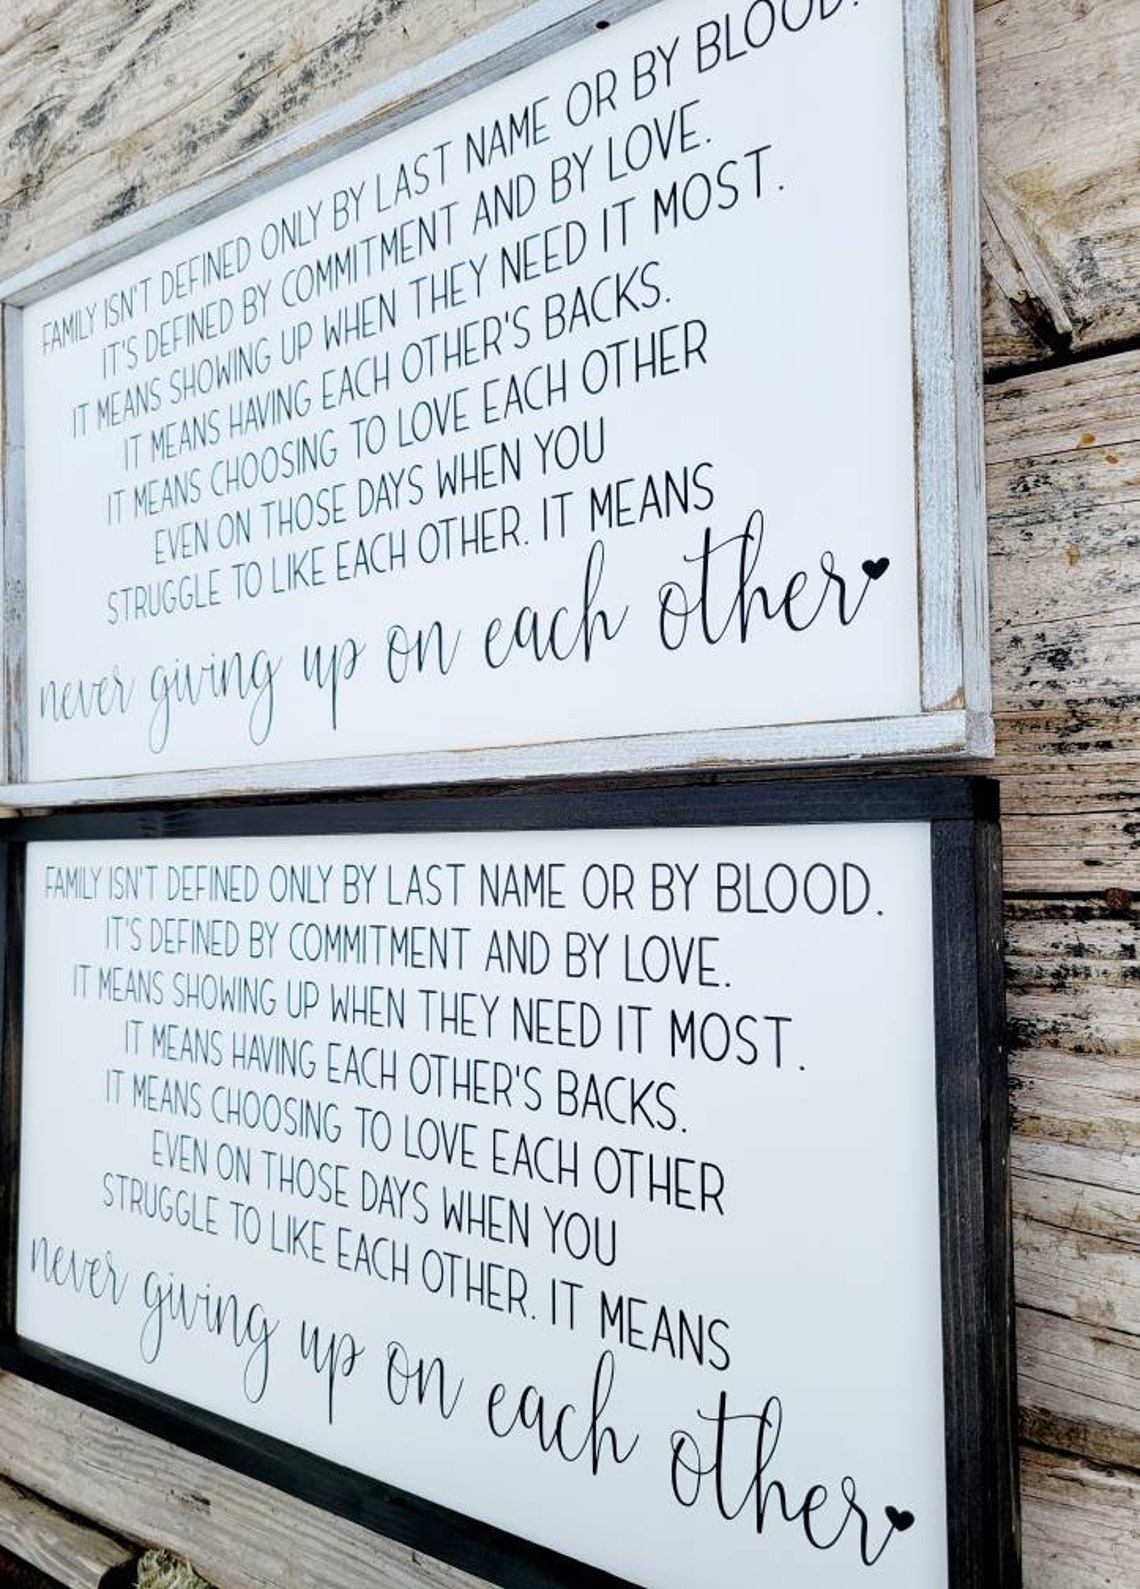 FAMILY ISN'T DEFINED ONLY BY LAST NAME OR BY BLOOD.
IT'S DEFINED BY COMMITMENT AND BY LOVE.
IT MEANS SHOWING UP WHEN THEY NEED IT MOST.
IT MEANS HAVING EACH OTHER'S BACKS.
IT MEANS CHOOSING TO LOVE EACH OTHER
EVEN ON THOSE DAYS WHEN YOU
STRUGGLE TO LIKE EACH OTHER. IT MEANS
never giving up on each other
FAMILY ISN'T DEFINED ONLY BY LAST NAME OR BY BLOOD.
IT'S DEFINED BY COMMITMENT AND BY LOVE.
IT MEANS SHOWING UP WHEN THEY NEED IT MOST.
IT MEANS HAVING EACH OTHER'S BACKS.
IT MEANS CHOOSING TO LOVE EACH OTHER
EVEN ON THOSE DAYS WHEN YOU
STRUGGLE TO LIKE EACH OTHER. IT MEANS
never giving up on each other